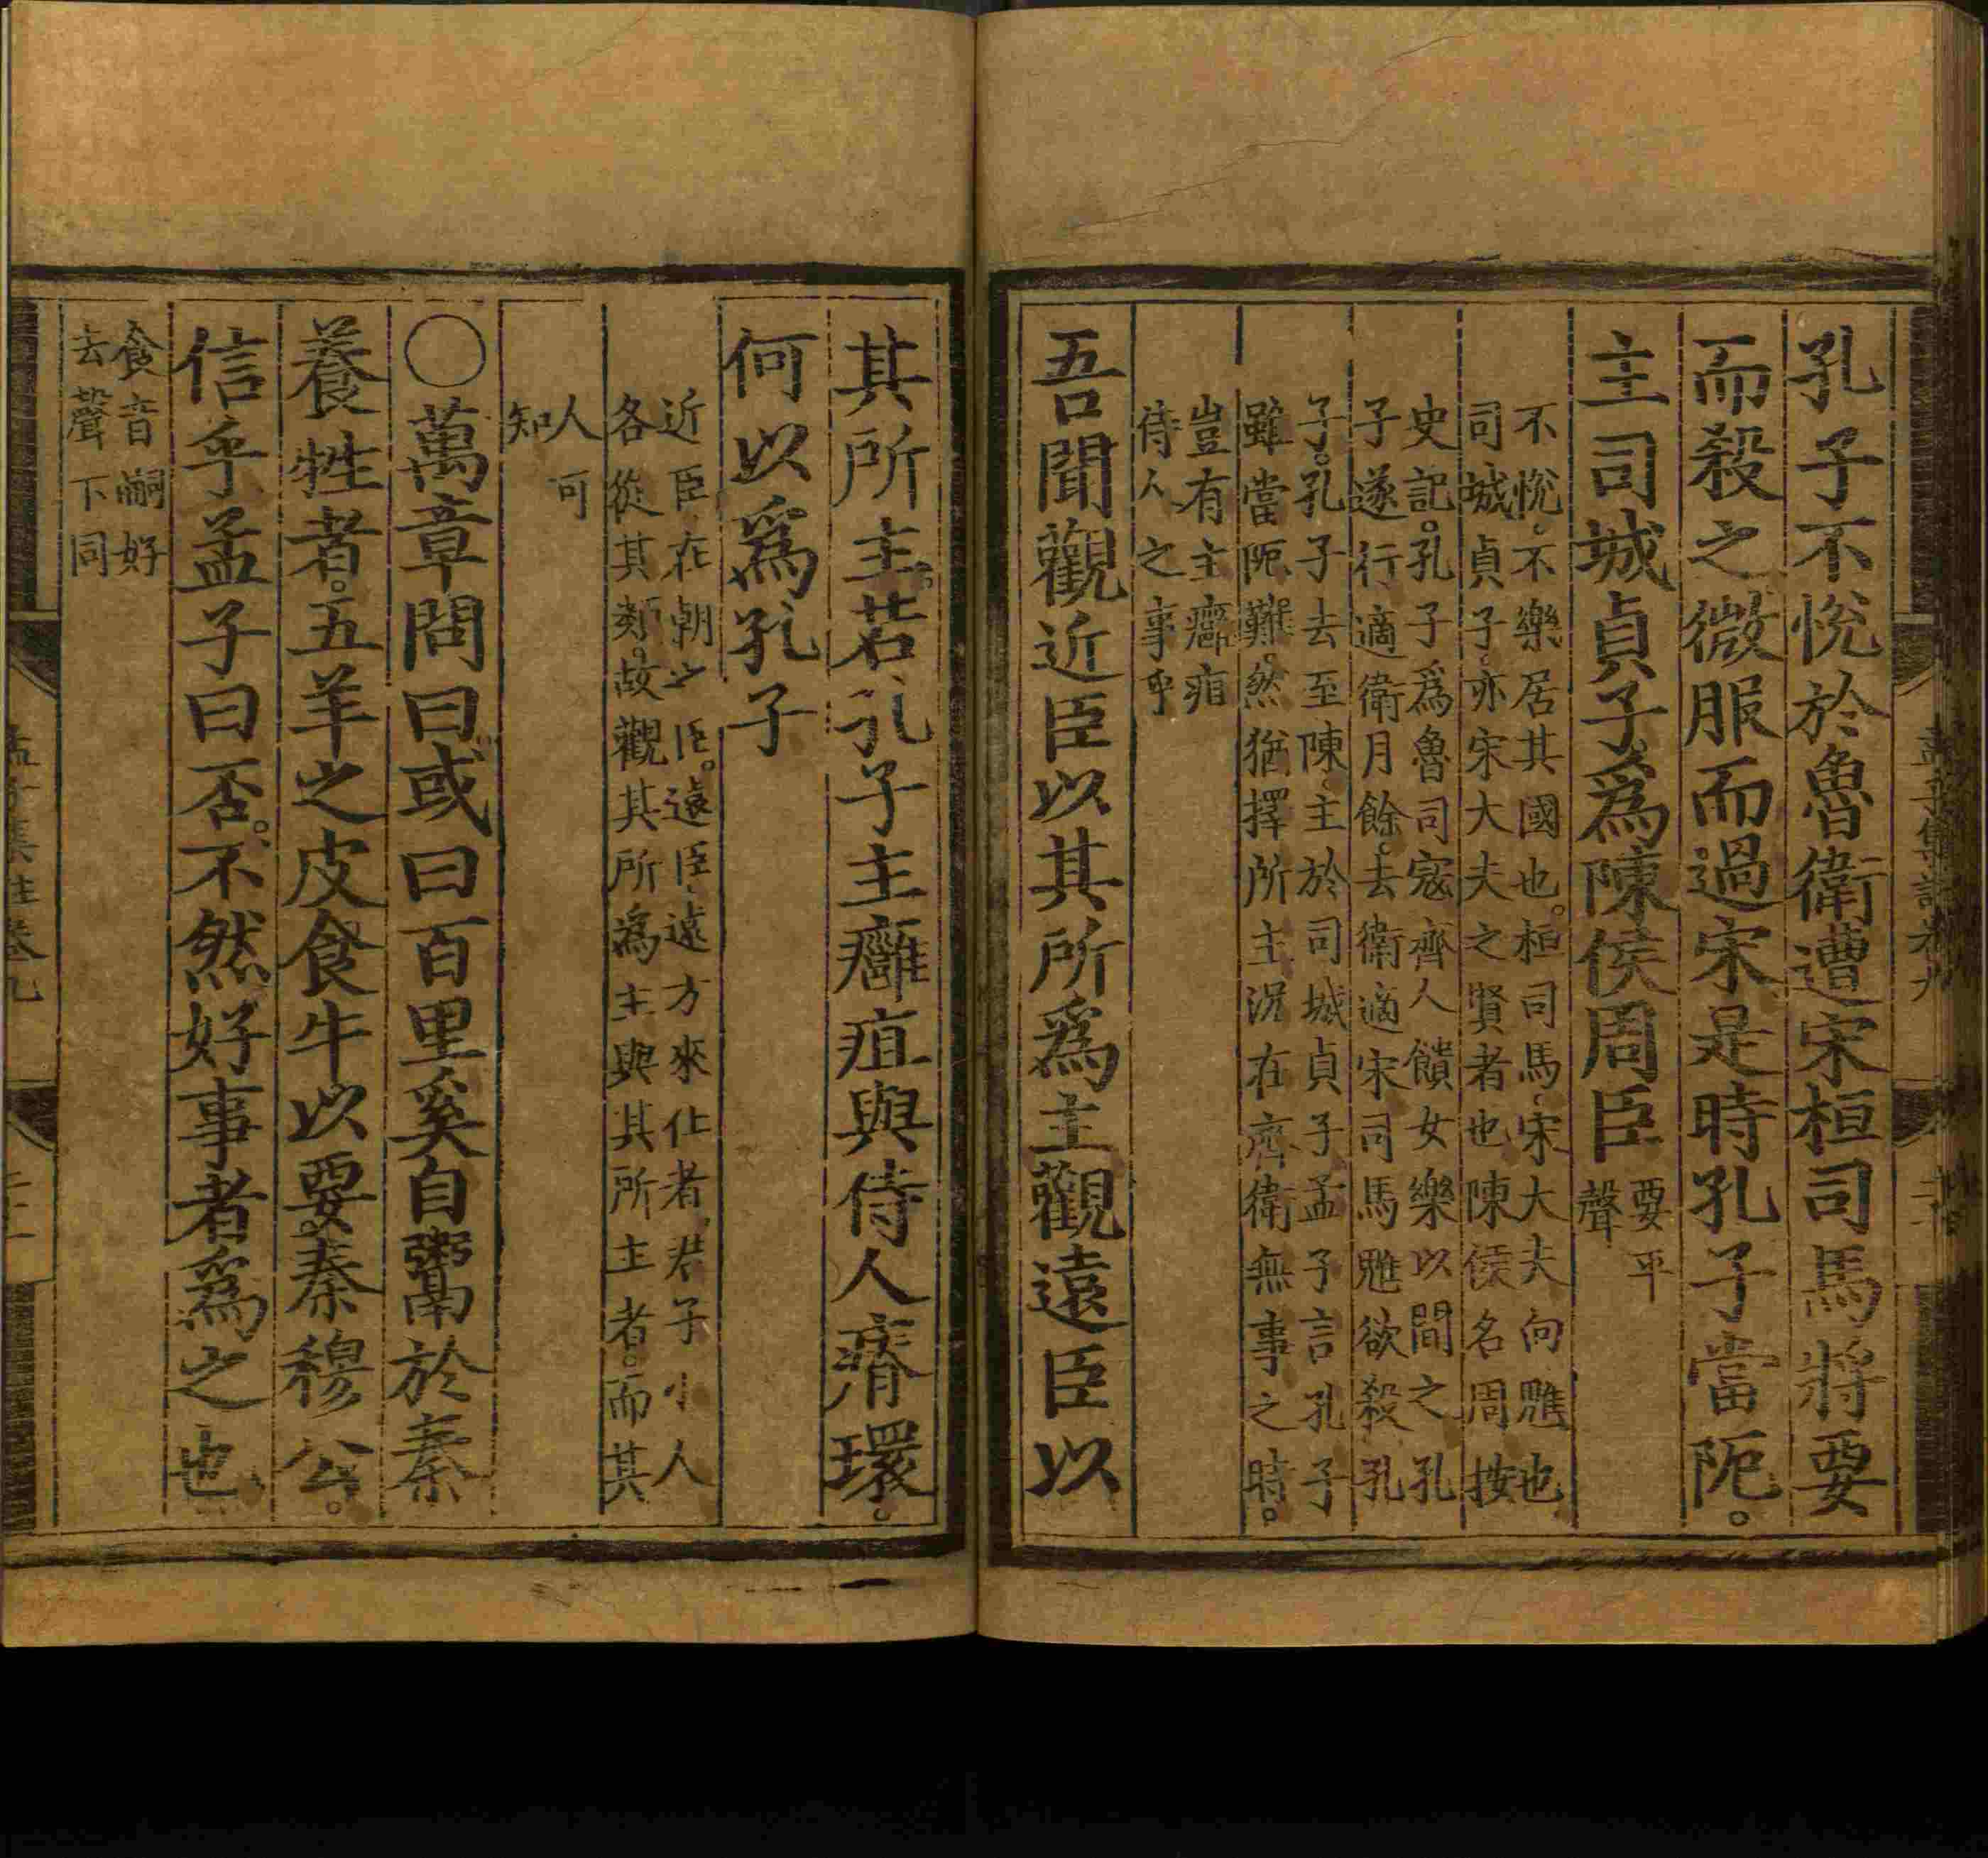 孔子不悅於魯衛遭宋桓司馬將要
而殺之微服而過宋是時孔子當阨。
主司城貞子。為陳侯周臣
要平
聲
不悅。不樂居其國也。桓司馬、宋大夫向魋也
司城貞子。亦宋大夫之賢者也陳侯名周按
史記。孔子爲魯司寇齊人饋女樂以間之孔
子遂行適衛月餘。去衛適宋司馬魋欲殺孔
子。孔子去至陳、主於司城貞子孟子言孔子
雖當阨難。然猶擇所主況在齊衛無事之時。
豈有主癰疽
侍人之事乎
吾聞觀近臣以其所爲主觀遠臣以
其所主。若孔子主癰疽與侍人瘠環。
何以爲孔子
近臣在朝之臣。遠臣、遠方來仕者、君子小人
各從其類。故觀其所爲主與其所主者。而其
人可
知
○萬章問曰或曰百里奚自鬻於秦
養牲者。五羊之皮食牛以要。秦穆公。
信乎孟子曰否。不然好事者爲之也
食音嗣好
去聲下同
孟子集註卷九